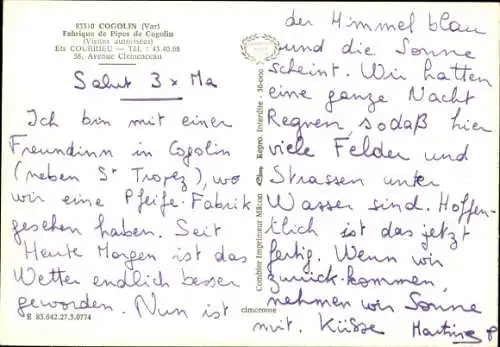 83310 COGOLIN (Var)
Fabrique de Pipes de Cogolin
(Visites autorisées)
Ets COURRIEU — Tél. : 43.40.08
56, Avenue Clemenceau
Salut 3 x Ma
Ich bin mit einer
Freundinn in Cogolin
(neben St Tropez), wo
wir eine Pfeife-Fabrik
gesehen haben. Seit
Heute Morgen ist das
Wetter endlich besser
geworden. Nun ist
E 83.042.27.5.0774
cimcrome
Combier Imprimeur Mâcon
Repro. Interdite - 30-000
der Himmel blau
und die Sonne
scheint. Wir hatten
eine ganze Nacht
Regnen, sodaß hier
viele Felder und
Strassen unter
Wasser sind. Hoffen-
tlich ist das jetzt
fertig. Wenn wir
zurück-kommen,
nehmen wir Sonne
mit. Küsse Martine